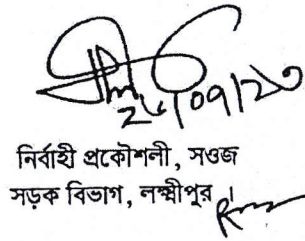 ২৫/০৭/২৩
নির্বাহী প্রকৌশলী, সওজ
সড়ক বিভাগ, লক্ষ্মীপুর।